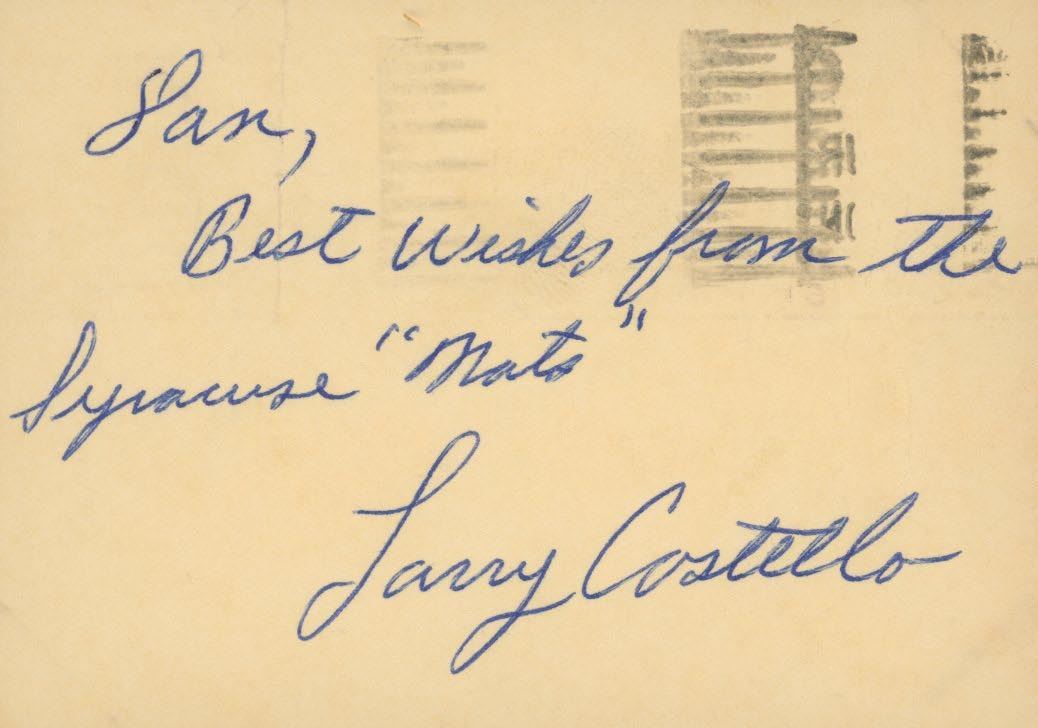 Best Wishes from the
Syracuse "Nats"
Larry Costello